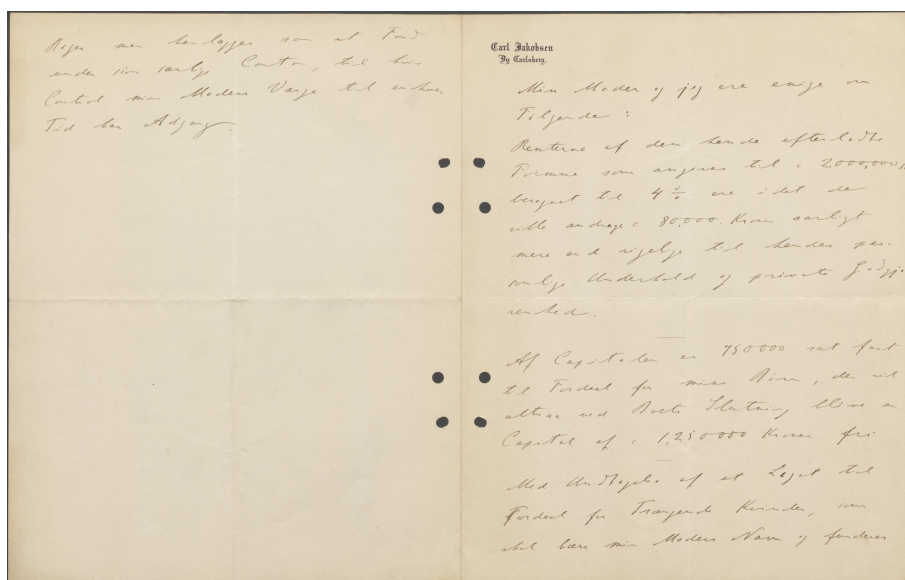 men henlægges som et Fond
under sin særlige Conto, til hvis
Control min Moders Værge til enhver
Tid har Adgang.
Carl Jakobsen
Ny Carlsberg.
Min Moder og jeg ere enige om
Følgende:
Renterne af den hende efterladte
Formue som angives til c 2000,000
beregnet til 4 % ere idet de
ville andrage c 80.000. Kroner aarligt
mere end rigelige til hendes per-
sonlige Underhold og private Godgjø-
renhed.
Af Capitalen er 750000 sat fast
til Fordeel for mine Børn, der vil
altsaa ved Boets Slutning blive en
Capital af c 1,250000 Kroner fri
Med Undtagelse af et Legat til
Fordeel for Trængende Kvinder, som
skal bære min Moders Navn og funderes